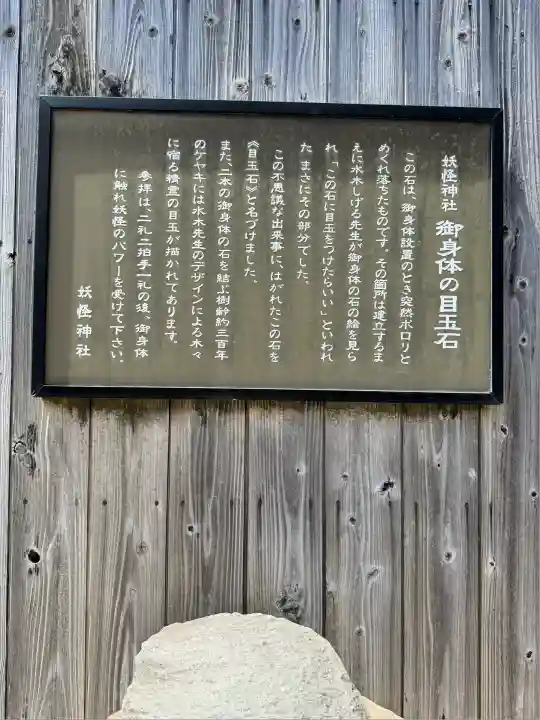 妖怪神社 御身体の目玉石
この石は、御身体設置のとき突然ポロリと
めくれ落ちたものです。その箇所は建立するま
えに水木しげる先生が御身体の石の絵を見ら
れ、「この石に目玉をつけたらいい」といわれ
た、まさにその部分でした。
この不思議な出来事に、はがれたこの石を
《目玉石》と名づけました。
また、二本の御身体の石を結ぶ樹齢約三百年
のケヤキには水木先生のデザインによる木々
に宿る精霊の目玉が描かれてあります。
参拝は、二礼二拍手一礼の後、御身体
に触れ妖怪のパワーを受けて下さい。
妖怪神社